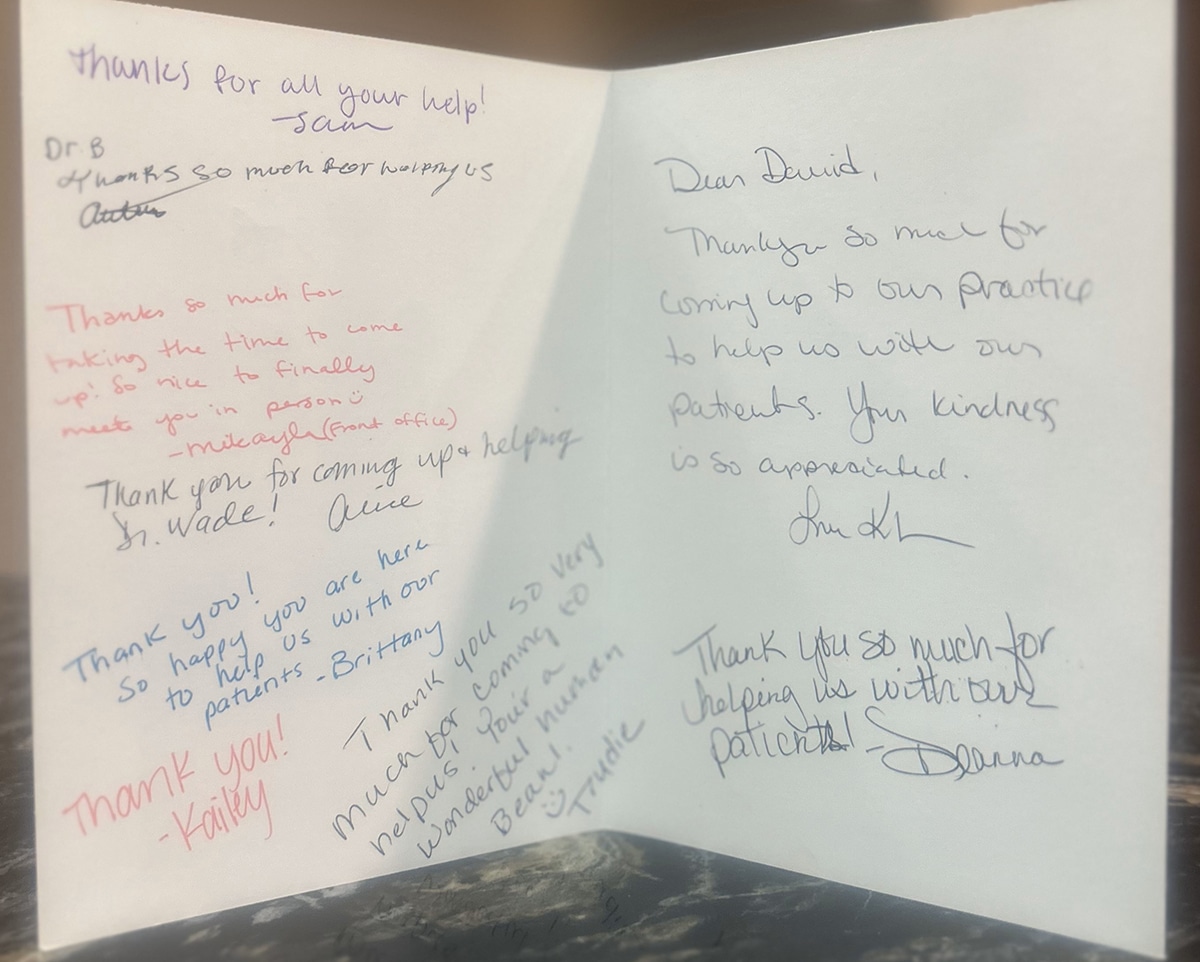 Thanks for all your help!
-Sam
Dr. B
Thanks so much for helping us
Thanks so much for
taking the time to come
up! So nice to finally
meet you in person
-mikayla (Front office)
Thank you for coming up + helping
Dr. Wade! Alice
Thank you!
So happy you are here
to help us with our
patients -Brittany
Thank you!
-Kailey
Thank you so very
much for coming to
help us. Your a
wonderful human
Bean!
Trudie
Dear David,
Thank you so much for
coming up to our practice
to help us with our
patients. Your kindness
is so appreciated.
Thank you so much for
helping us with our
patients! -Deanna